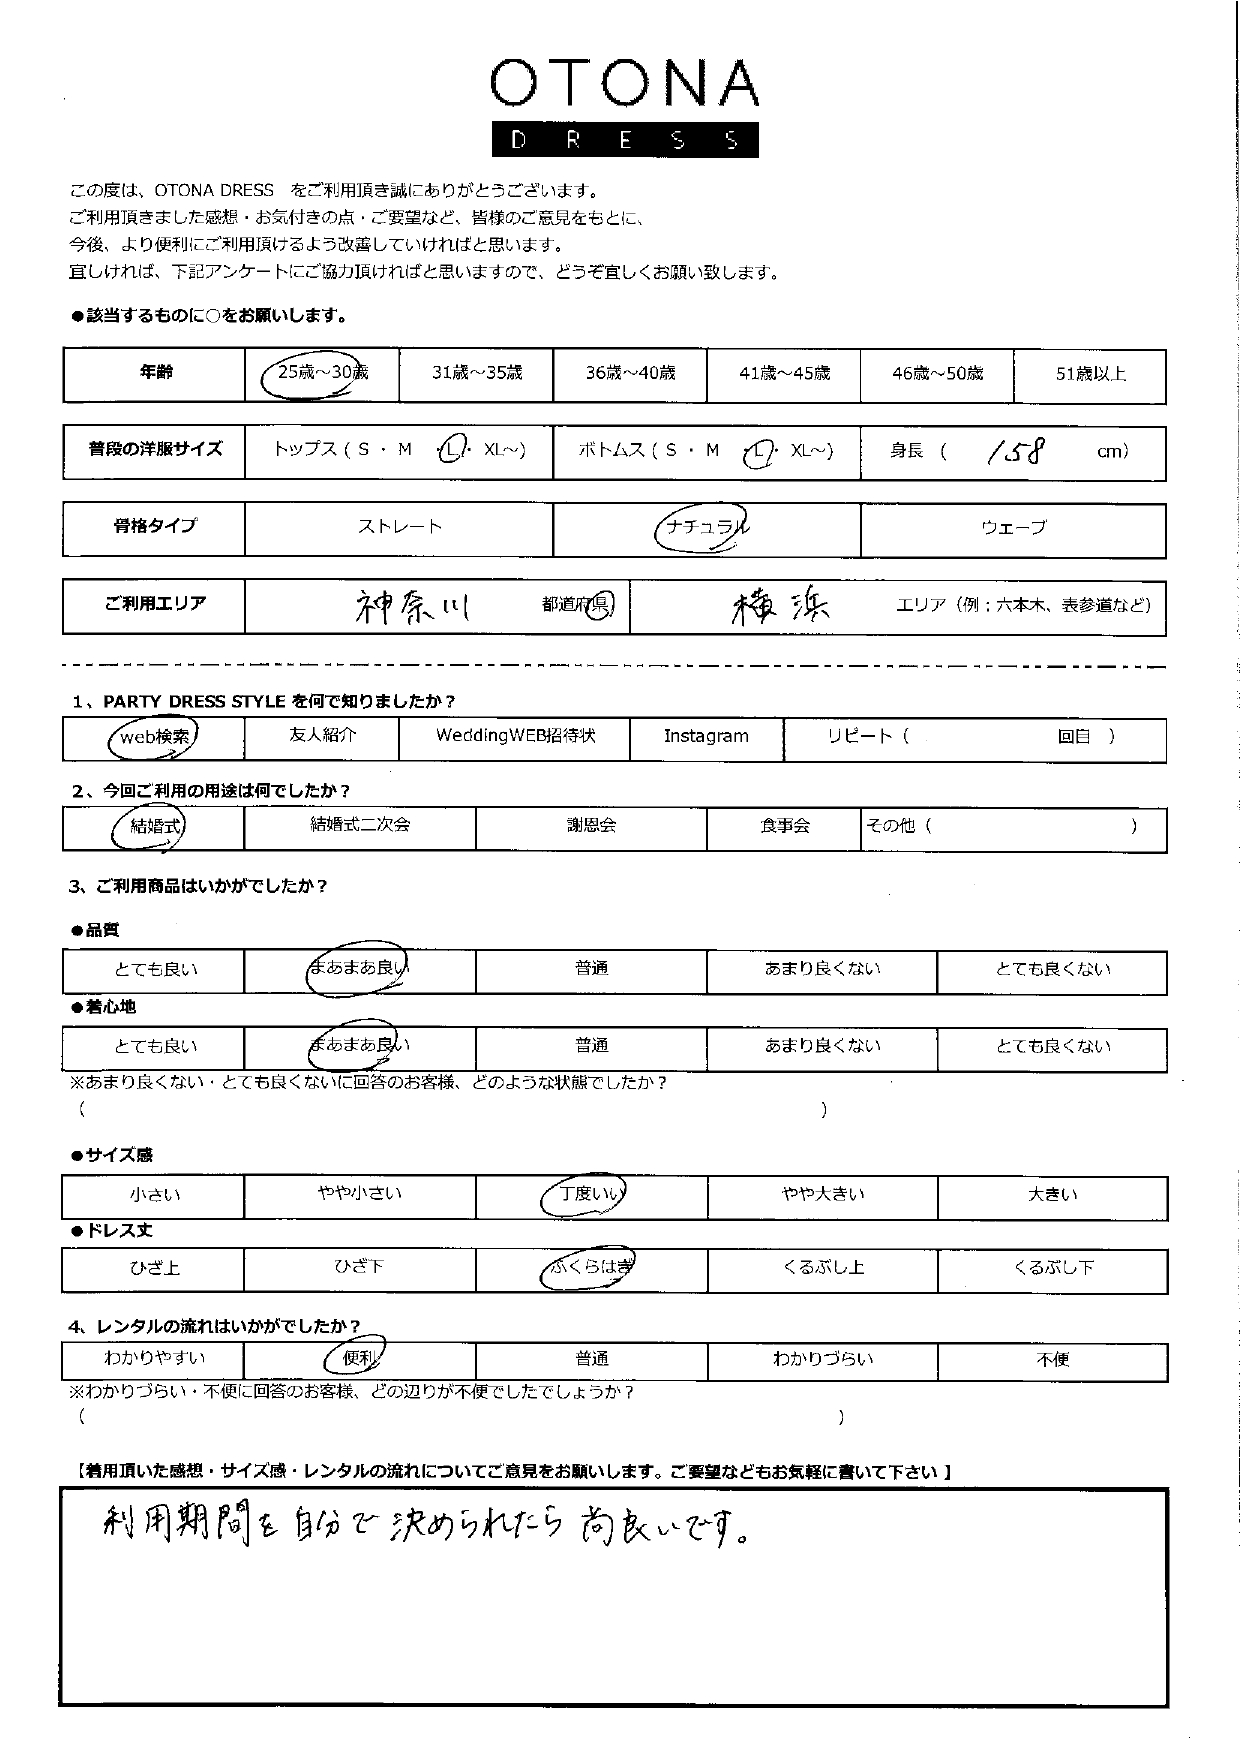 OTONA
DRESS
この度は、OTONA DRESS　をご利用頂き誠にありがとうございます。
ご利用頂きました感想・お気付きの点・ご要望など、皆様のご意見をもとに、
今後、より便利にご利用頂けるよう改善していければと思います。
宜しければ、下記アンケートにご協力頂ければと思いますので、どうぞ宜しくお願い致します。
●該当するものに○をお願いします。
年齢 25歳～30歳 31歳～35歳 36歳～40歳 41歳～45歳 46歳～50歳 51歳以上
普段の洋服サイズ トップス ( S ・ M ・ L ・ XL～) ボトムス ( S ・ M ・ L ・ XL～) 身長 ( 158 cm)
骨格タイプ ストレート ナチュラル ウェーブ
ご利用エリア 神奈川 都道府県 横浜 エリア（例：六本木、表参道など）
1、PARTY DRESS STYLE を何で知りましたか？
web検索 友人紹介 WeddingWEB招待状 Instagram リピート（ 回目 ）
2、今回ご利用の用途は何でしたか？
結婚式 結婚式二次会 謝恩会 食事会 その他（ ）
3、ご利用商品はいかがでしたか？
●品質
とても良い まあまあ良い 普通 あまり良くない とても良くない
●着心地
とても良い まあまあ良い 普通 あまり良くない とても良くない
※あまり良くない・とても良くないに回答のお客様、どのような状態でしたか？
（ ）
●サイズ感
小さい やや小さい 丁度いい やや大きい 大きい
●ドレス丈
ひざ上 ひざ下 ふくらはぎ くるぶし上 くるぶし下
4、レンタルの流れはいかがでしたか？
わかりやすい 便利 普通 わかりづらい 不便
※わかりづらい・不便に回答のお客様、どの辺りが不便でしたでしょうか？
（ ）
【着用頂いた感想・サイズ感・レンタルの流れについてご意見をお願いします。ご要望などもお気軽に書いて下さい】
利用期間を自分で決められたら尚良いです。